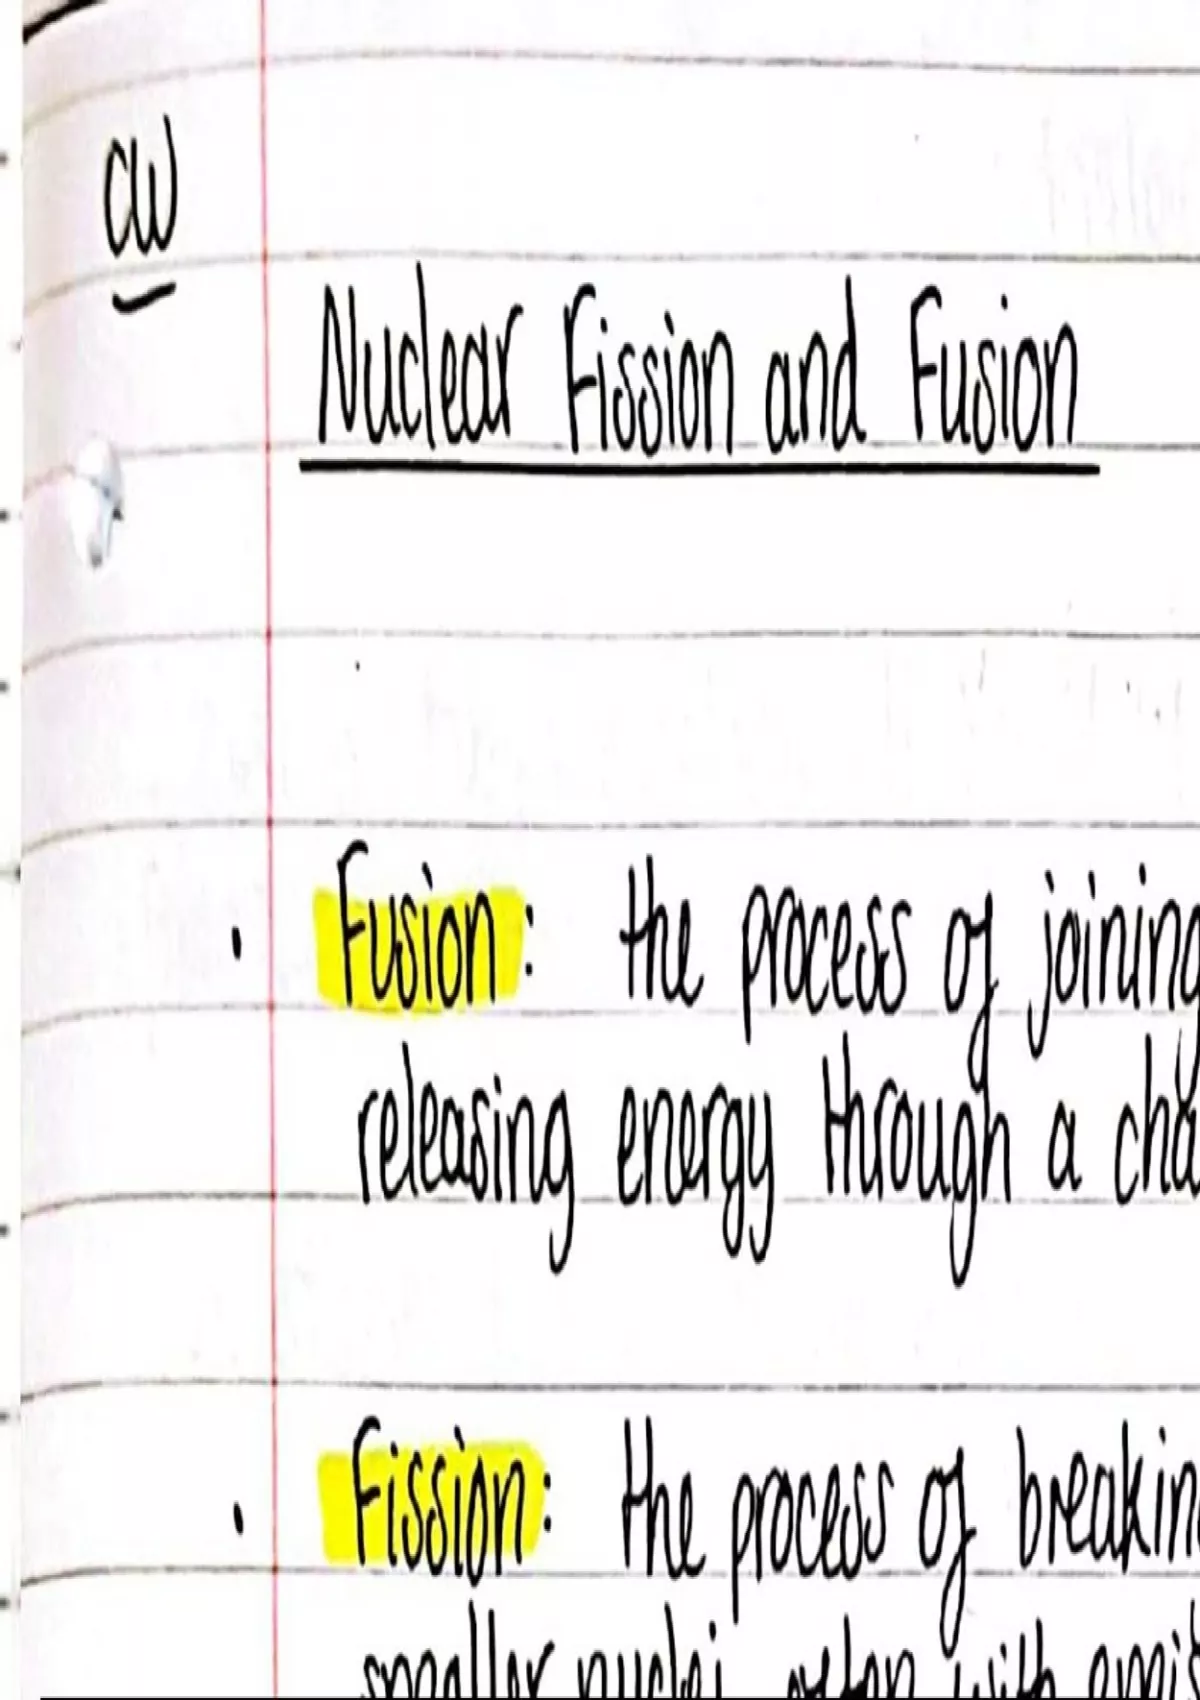 CW
Nuclear Fission and Fusion
• Fusion: the process of joining
releasing energy through a
• Fission: the process of
smaller nuclei, often with